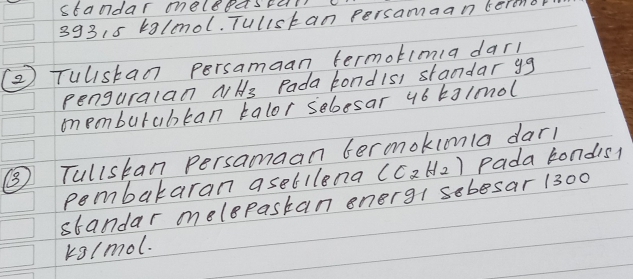 standar melepaskan
393,5 kg/mol. Tuliskan Persamaan
(2) Tuliskan Persamaan termokimia dari
penguraian NH3 Pada kondisi standar yg
membutuhkan kalor sebesar 46 kg/mol
(3) Tuliskan Persamaan termokimia dari
pembakaran asetilena (C2H2) pada kondisi
standar melepaskan energi sebesar 1300
kg/mol.